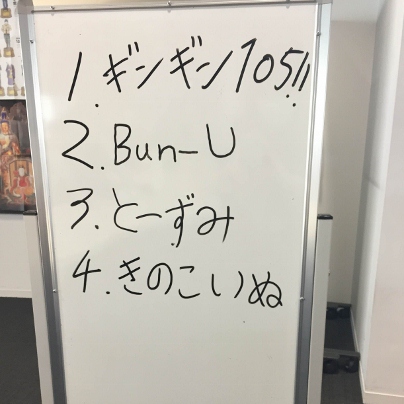 1. ギンギン105!!
2. Bun-U
3. とーずみ
4. きのこいぬ